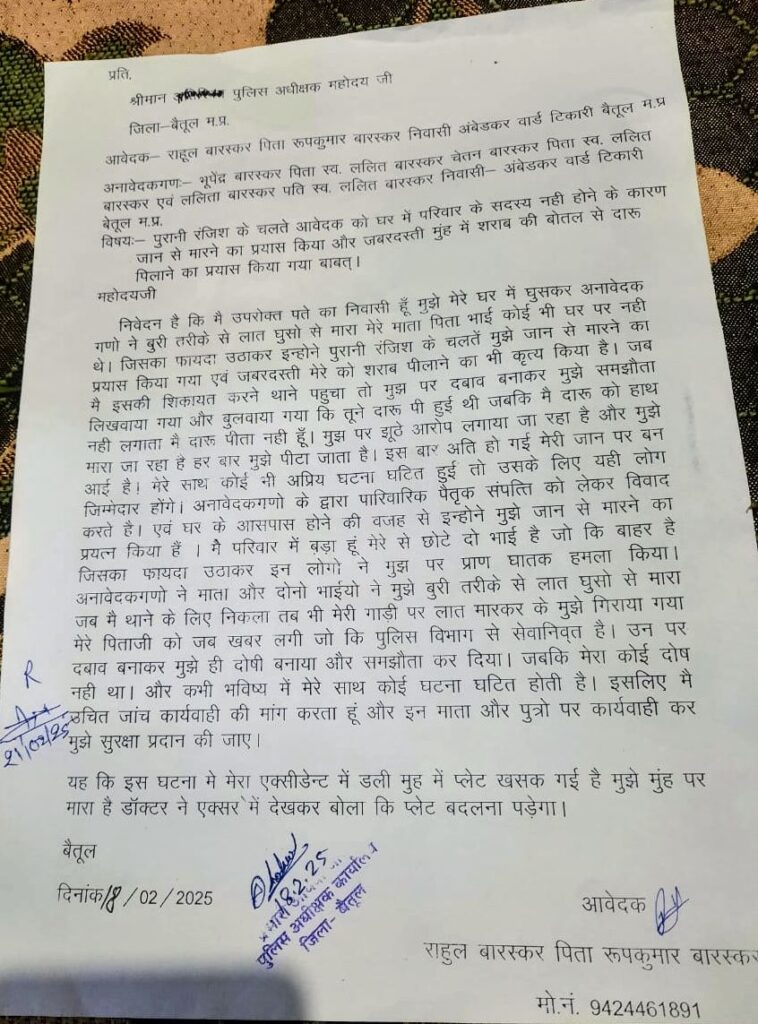 प्रति,
श्रीमान पुलिस अधीक्षक महोदय जी
जिला–बैतूल म.प्र.
आवेदक– राहूल बारस्कर पिता रूपकुमार बारस्कर निवासी अंबेडकर वार्ड टिकारी बैतूल म.प्र
अनावेदकगणः– भूपेंद्र बारस्कर पिता स्व. ललित बारस्कर चेतन बारस्कर पिता स्व. ललित
बारस्कर एवं ललिता बारस्कर पति स्व. ललित बारस्कर निवासी– अंबेडकर वार्ड टिकारी
बेतूल म.प्र.
विषयः– पुरानी रंजिश के चलते आवेदक को घर में परिवार के सदस्य नही होने के कारण
जान से मारने का प्रयास किया और जबरदस्ती मुंह में शराब की बोतल से दारू
पिलाने का प्रयास किया गया बाबत्।
महोदयजी
निवेदन है कि मै उपरोक्त पते का निवासी हूँ मुझे मेरे घर में घुसकर अनावेदक
गणो ने बुरी तरीके से लात घुसो से मारा मेरे माता पिता भाई कोई भी घर पर नही
थे। जिसका फायदा उठाकर इन्होने पुरानी रंजिश के चलतें मुझे जान से मारने का
प्रयास किया गया एवं जबरदस्ती मेरे को शराब पीलाने का भी कृत्य किया है। जब
मै इसकी शिकायत करने थाने पहुचा तो मुझ पर दबाव बनाकर मुझे समझौता
लिखवाया गया और बुलवाया गया कि तूने दारू पी हुई थी जबकि मै दारू को हाथ
नही लगाता मै दारू पीता नही हूँ। मुझ पर झूठे आरोप लगाया जा रहा है और मुझे
मारा जा रहा है हर बार मुझे पीटा जाता है। इस बार अति हो गई मेरी जान पर बन
आई है। मेरे साथ कोई भी अप्रिय घटना घटित हुई तो उसके लिए यही लोग
जिम्मेदार होंगे। अनावेदकगणो के द्वारा पारिवारिक पैतृक संपत्ति को लेकर विवाद
करते है। एवं घर के आसपास होने की वजह से इन्होने मुझे जान से मारने का
प्रयत्न किया हैं । मै परिवार में बड़ा हूं मेरे से छोटे दो भाई है जो कि बाहर है
जिसका फायदा उठाकर इन लोगो ने मुझ पर प्राण घातक हमला किया।
अनावेदकगणो ने माता और दोनो भाईयो ने मुझे बुरी तरीके से लात घुसो से मारा
जब मै थाने के लिए निकला तब भी मेरी गाड़ी पर लात मारकर के मुझे गिराया गया
मेरे पिताजी को जब खबर लगी जो कि पुलिस विभाग से सेवानिवृत है। उन पर
दबाव बनाकर मुझे ही दोषी बनाया और समझौता कर दिया। जबकि मेरा कोई दोष
नही था। और कभी भविष्य में मेरे साथ कोई घटना घटित होती है। इसलिए मै
उचित जांच कार्यवाही की मांग करता हूं और इन माता और पुत्रो पर कार्यवाही कर
मुझे सुरक्षा प्रदान की जाए।
R
21/02/25
यह कि इस घटना मे मेरा एक्सीडेन्ट में डली मुह में प्लेट खसक गई है मुझे मुंह पर
मारा है डॉक्टर ने एक्सर में देखकर बोला कि प्लेट बदलना पड़ेगा।
बैतूल
दिनांक 18 / 02 / 2025
18.2.25
पुलिस अधीक्षक कार्यालय
जिला– बैतूल
आवेदक
राहुल बारस्कर पिता रूपकुमार बारस्कर
मो.नं. 9424461891